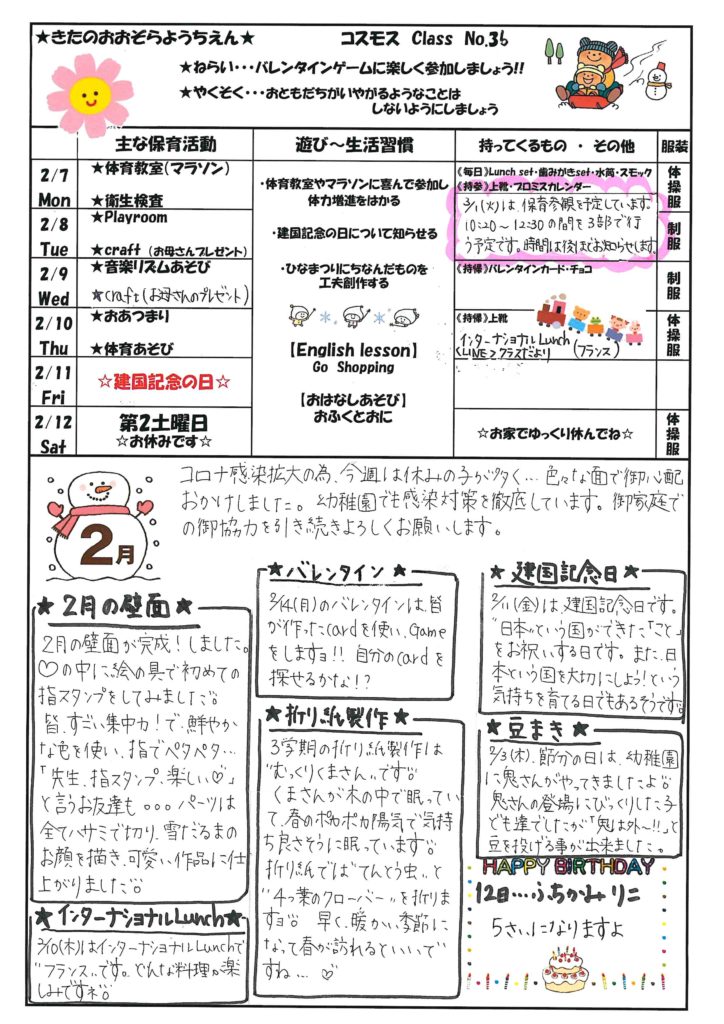 ★きたのおおぞらようちえん★ コスモス Class No.36
★ねらい・・・バレンタインゲームに楽しく参加しましょう!!
★やくそく・・・おともだちがいやがるようなことは
しないようにしましょう
主な保育活動 遊び～生活習慣 持ってくるもの ・ その他 服装
2/7
Mon
★体育教室(マラソン)
★衛生検査
2/8
Tue
★Playroom
★craft (お母さんプレゼント)
2/9
Wed
★音楽リズムあそび
★craft(お母さんのプレゼント)
2/10
Thu
★おあつまり
★体育あそび
2/11
Fri
☆建国記念の日☆
2/12
Sat
第2土曜日
☆お休みです☆
・体育教室やマラソンに喜んで参加し
体力増進をはかる
・建国記念の日について知らせる
・ひなまつりにちなんだものを
工夫創作する
【English lesson】
Go Shopping
【おはなしあそび】
おふくとおに
《毎日》Lunch set・歯みがきset・水筒・スモック
《持参》上靴・プロミスカレンダー
3/1(火)は保育参観を予定しています。
10:20～12:30の間を3部で行
う予定です。時間は後ほどお知らせします。
《持帰》バレンタインカード・チョコ
《持帰》上靴
インターナショナルLunch
(フランス)
<LINE>クラスだより
☆お家でゆっくり休んでね☆
体操服
制服
制服
体操服
体操服
コロナ感染拡大の為、今週は休みの子が多く…色々な面で御心配
おかけしました。幼稚園でも感染対策を徹底しています。御家庭で
の御協力を引き続きよろしくお願いします。
2月
★2月の壁面★
2月の壁面が完成!しました。
♡の中に絵の具で初めての
指スタンプをしてみました
皆、すごい集中力!で、鮮やか
な色を使い、指でペタペタ…
「先生、指スタンプ、楽しい♡」
と言うお友達も。。。パーツは
全てハサミで切り、雪だるまの
お顔を描き、可愛い作品に仕
上がりました
★インターナショナルLunch★
2/10(木)はインターナショナルLunchで
"フランス"です。どんな料理が楽
しみですネ
★バレンタイン★
2/14(月)のバレンタインは、皆
が作ったcardを使い、Game
をしますョ!! 自分のcardを
探せるかな!?
★折り紙製作★
3学期の折り紙製作は
"むっくりくまさん"です
くまさんが木の中で眠ってい
て、春のポカポカ陽気で気持
ち良さそうに眠っています
折り紙では"てんとう虫"と
"4つ葉のクローバー"を折りま
すョ 早く、暖かい季節に
なって春が訪れるといいで
すね…♡
★建国記念日★
2/11(金)は、建国記念日です。
"日本"という国ができた「こと」
をお祝いする日です。また、日
本という国を大切にしよう!という
気持ちを育てる日でもあるそうです
★豆まき★
2/3(木)、節分の日は、幼稚園
に鬼さんがやってきましたよ
鬼さんの登場にびっくりした子
ども達でしたが「鬼は外～!!」と
豆を投げる事が出来ました。
HAPPY BIRTHDAY
12日…ふちかみ リニ
5さいになりますよ